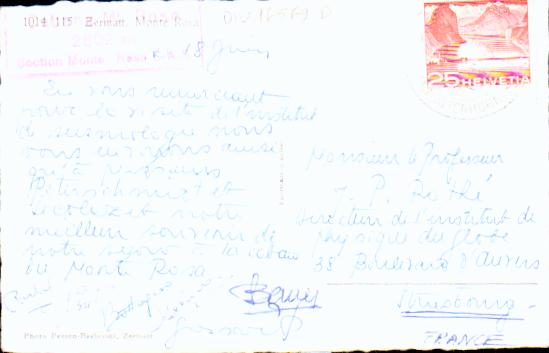 1014 115 Zermatt, Monte Rosa
DIV 16569 D
Section Monte Rosa
18 Juin
En vous remerciant
pour la visite de l'institut
de seismologie nous
vous envoyons ainsi
qu'à Messieurs
Peterschmitt et
et notre
meilleur souvenir de
notre séjour à la cabane
du Monte Rosa
Photo Perren-Barberini, Zermatt
25 HELVETIA
Monsieur le Professeur
J. P. Rothé
Directeur de l'institut de
physique du globe
38 Boulevard d'Anvers
Strasbourg
FRANCE